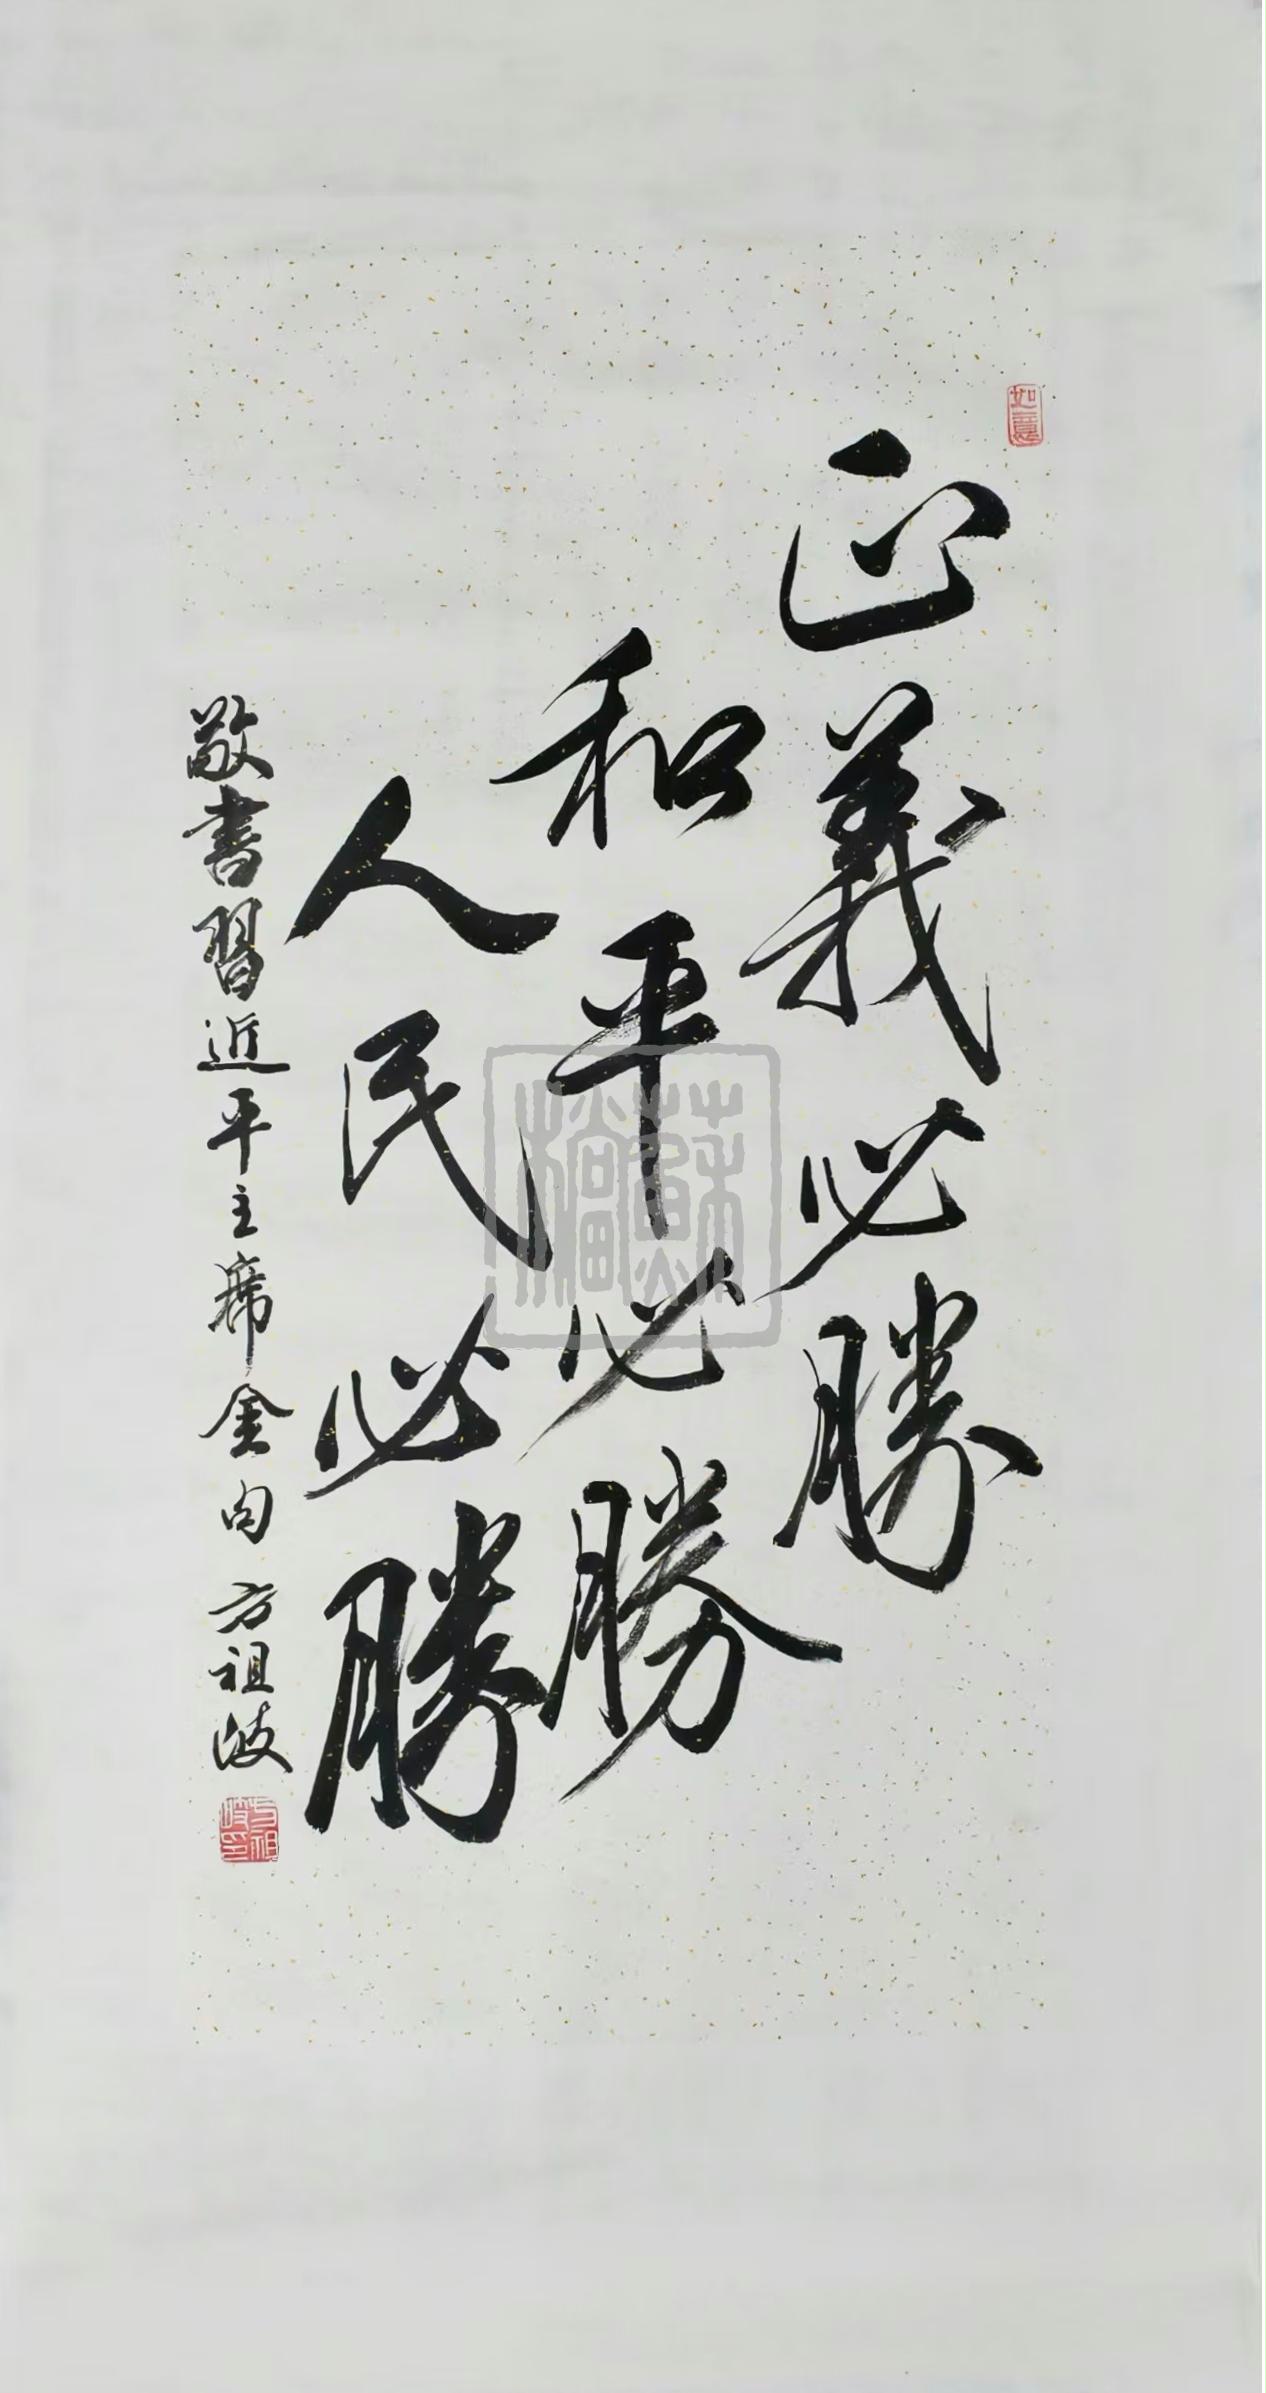 如意
正義必勝
和平必勝
人民必勝
敬書習近平主席金句 方祖岐
方祖岐印